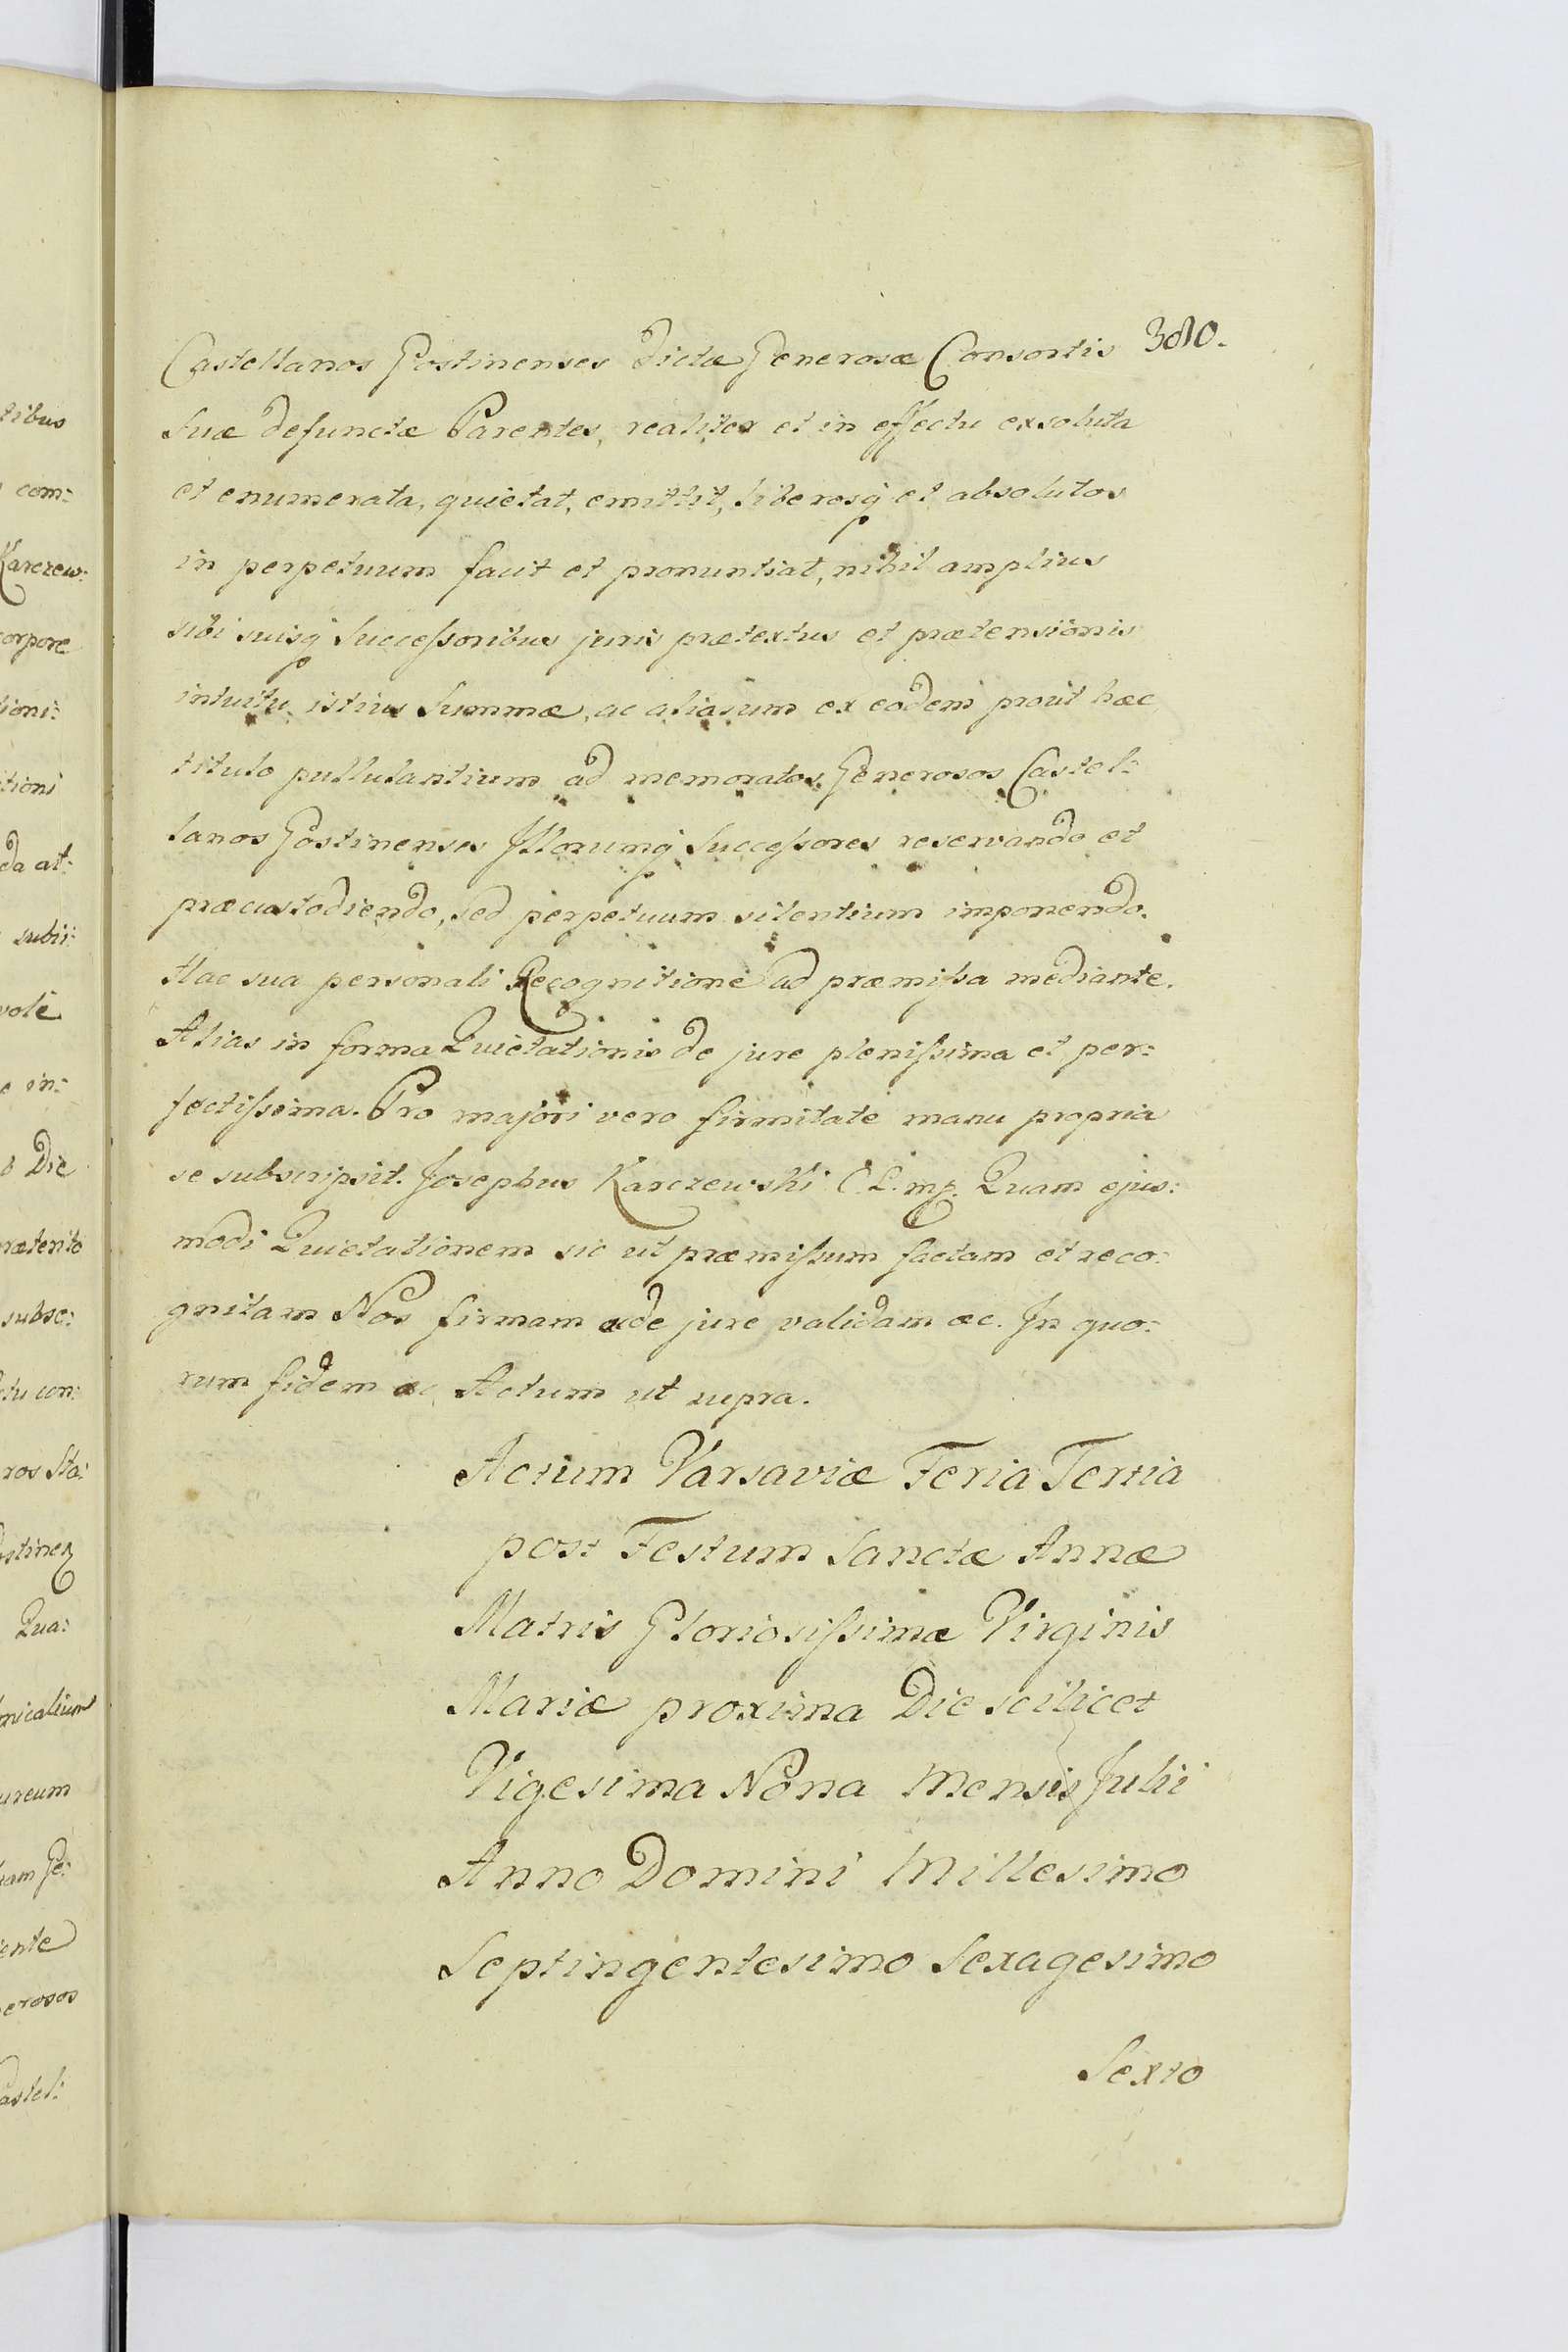 380.
Castellanos Gostinenses dictæ Generosæ Consortis
Suæ defunctæ Parentes, realiter et in effectu exsoluta
et enumerata, quietat, emittit, liberosq et absolutos
in perpetuum facit et pronuntiat, nihil amplius
sibi suisq Successoribus juris prætextus et prætensionis
intuitu istius Summæ, ac aliarum ex eodem prout hæc
titulo pullulantium ad memoratos Generosos Castel:
lanos Gostinenses Illorumq Successores reservando et
præcustodiendo, sed perpetuum silentium imponendo.
Hac sua personali Recognitione ad præmissa mediante.
Alias in forma Quietationis de jure plenissima et per:
fectissima. Pro majori vero firmitate manu propria
se subscripsit. Josephus Karczewski C. L. mp. Quam ejus:
modi Quietationem sic ut præmissum factam et reco:
gnitam Nos firmam de jure validam ac. In quo:
rum fidem ac Actum ut supra.
Actum Varsaviæ Feria Tertia
post Festum Sanctæ Annæ
Matris Gloriosissimæ Virginis
Mariæ proxima Die scilicet
Vigesima Nona Mensis Julii
Anno Domini Millesimo
Septingentesimo Sexagesimo
Sexto
tibus
com:
Karczew:
corpore
tioni:
itioni
eda at:
subii:
vole
e in:
o Die
præterito
subsc:
ctu con:
ros Sta:
ostinen
Qua:
micalium
ureum
nam Ge:
iente
erosos
astel: